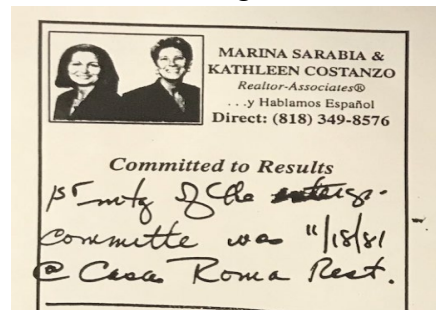 MARINA SARABIA &
KATHLEEN COSTANZO
Realtor-Associates®
...y Hablamos Español
Direct: (818) 349-8576
Committed to Results
1st mtg of the
committe was 11/18/81
@ Casa Roma Rest.